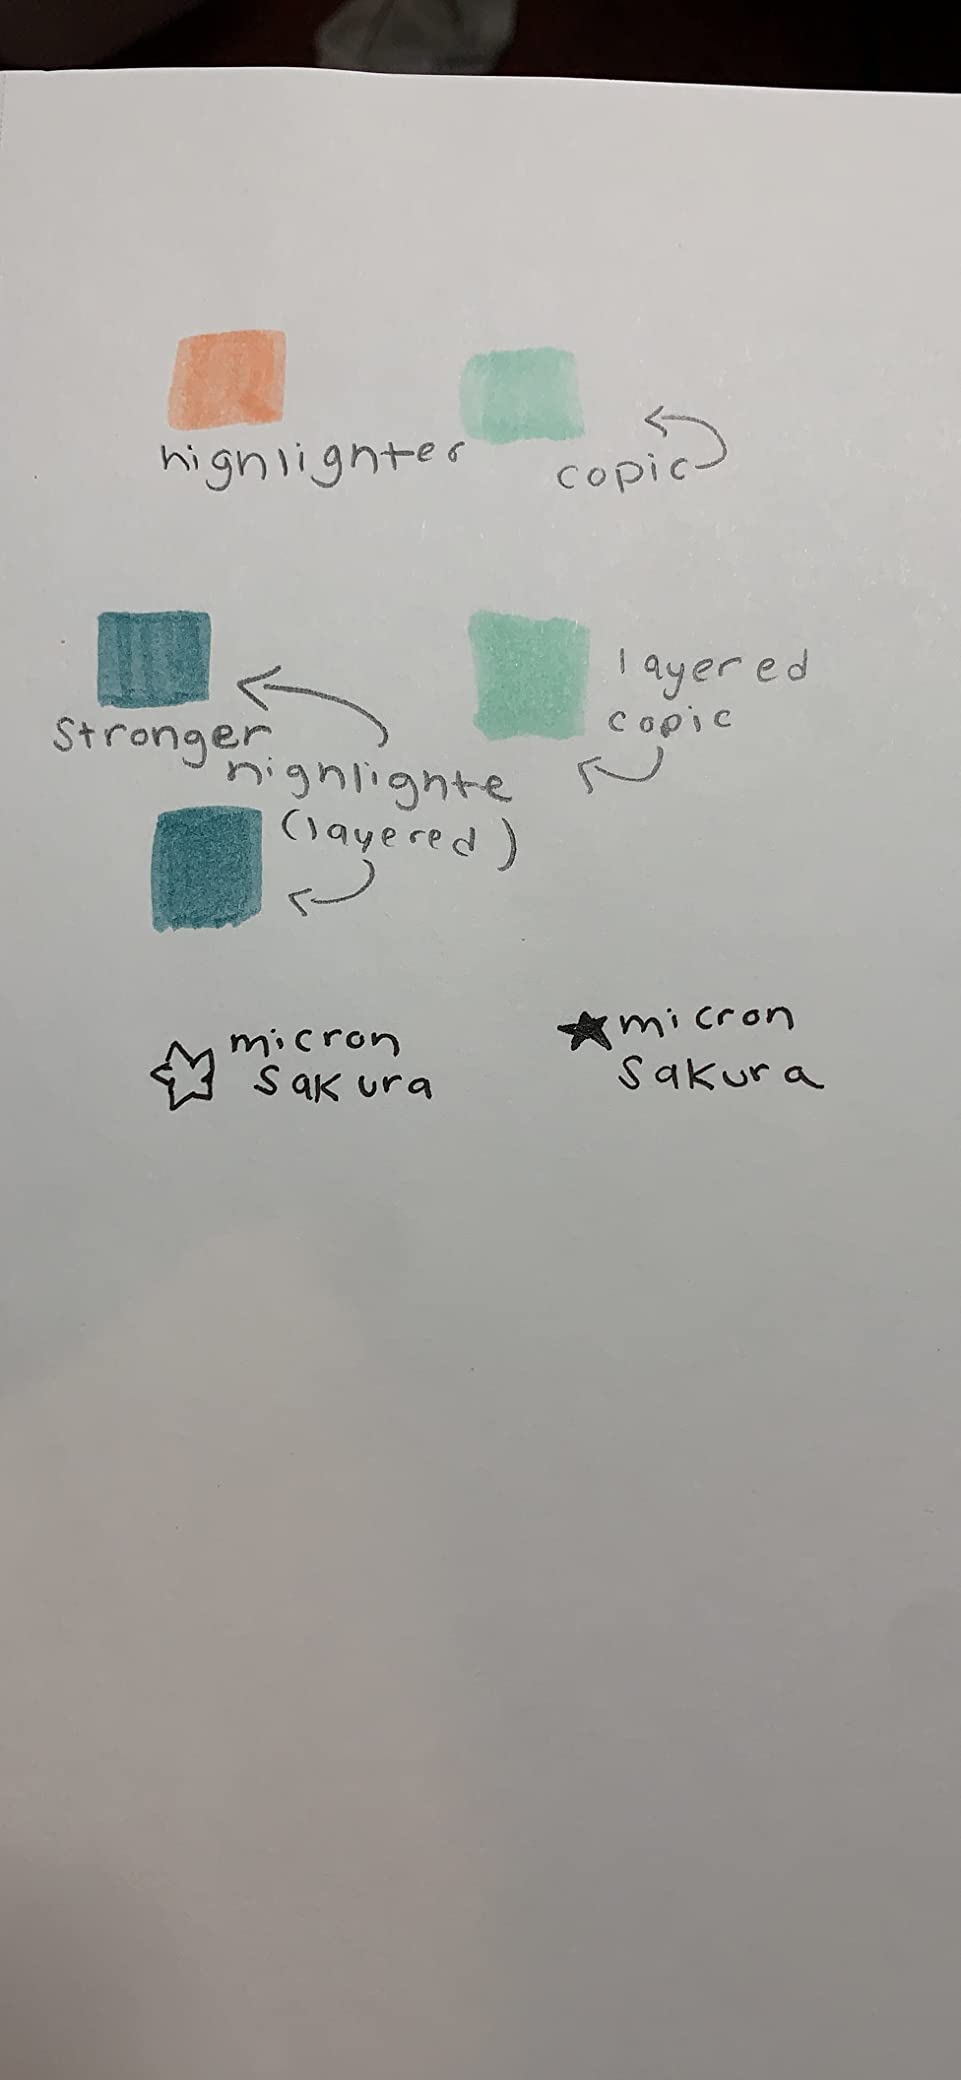 highlighter
copic
layered
copic
Stronger
highlighte
(layered)
micron
Sakura
micron
Sakura